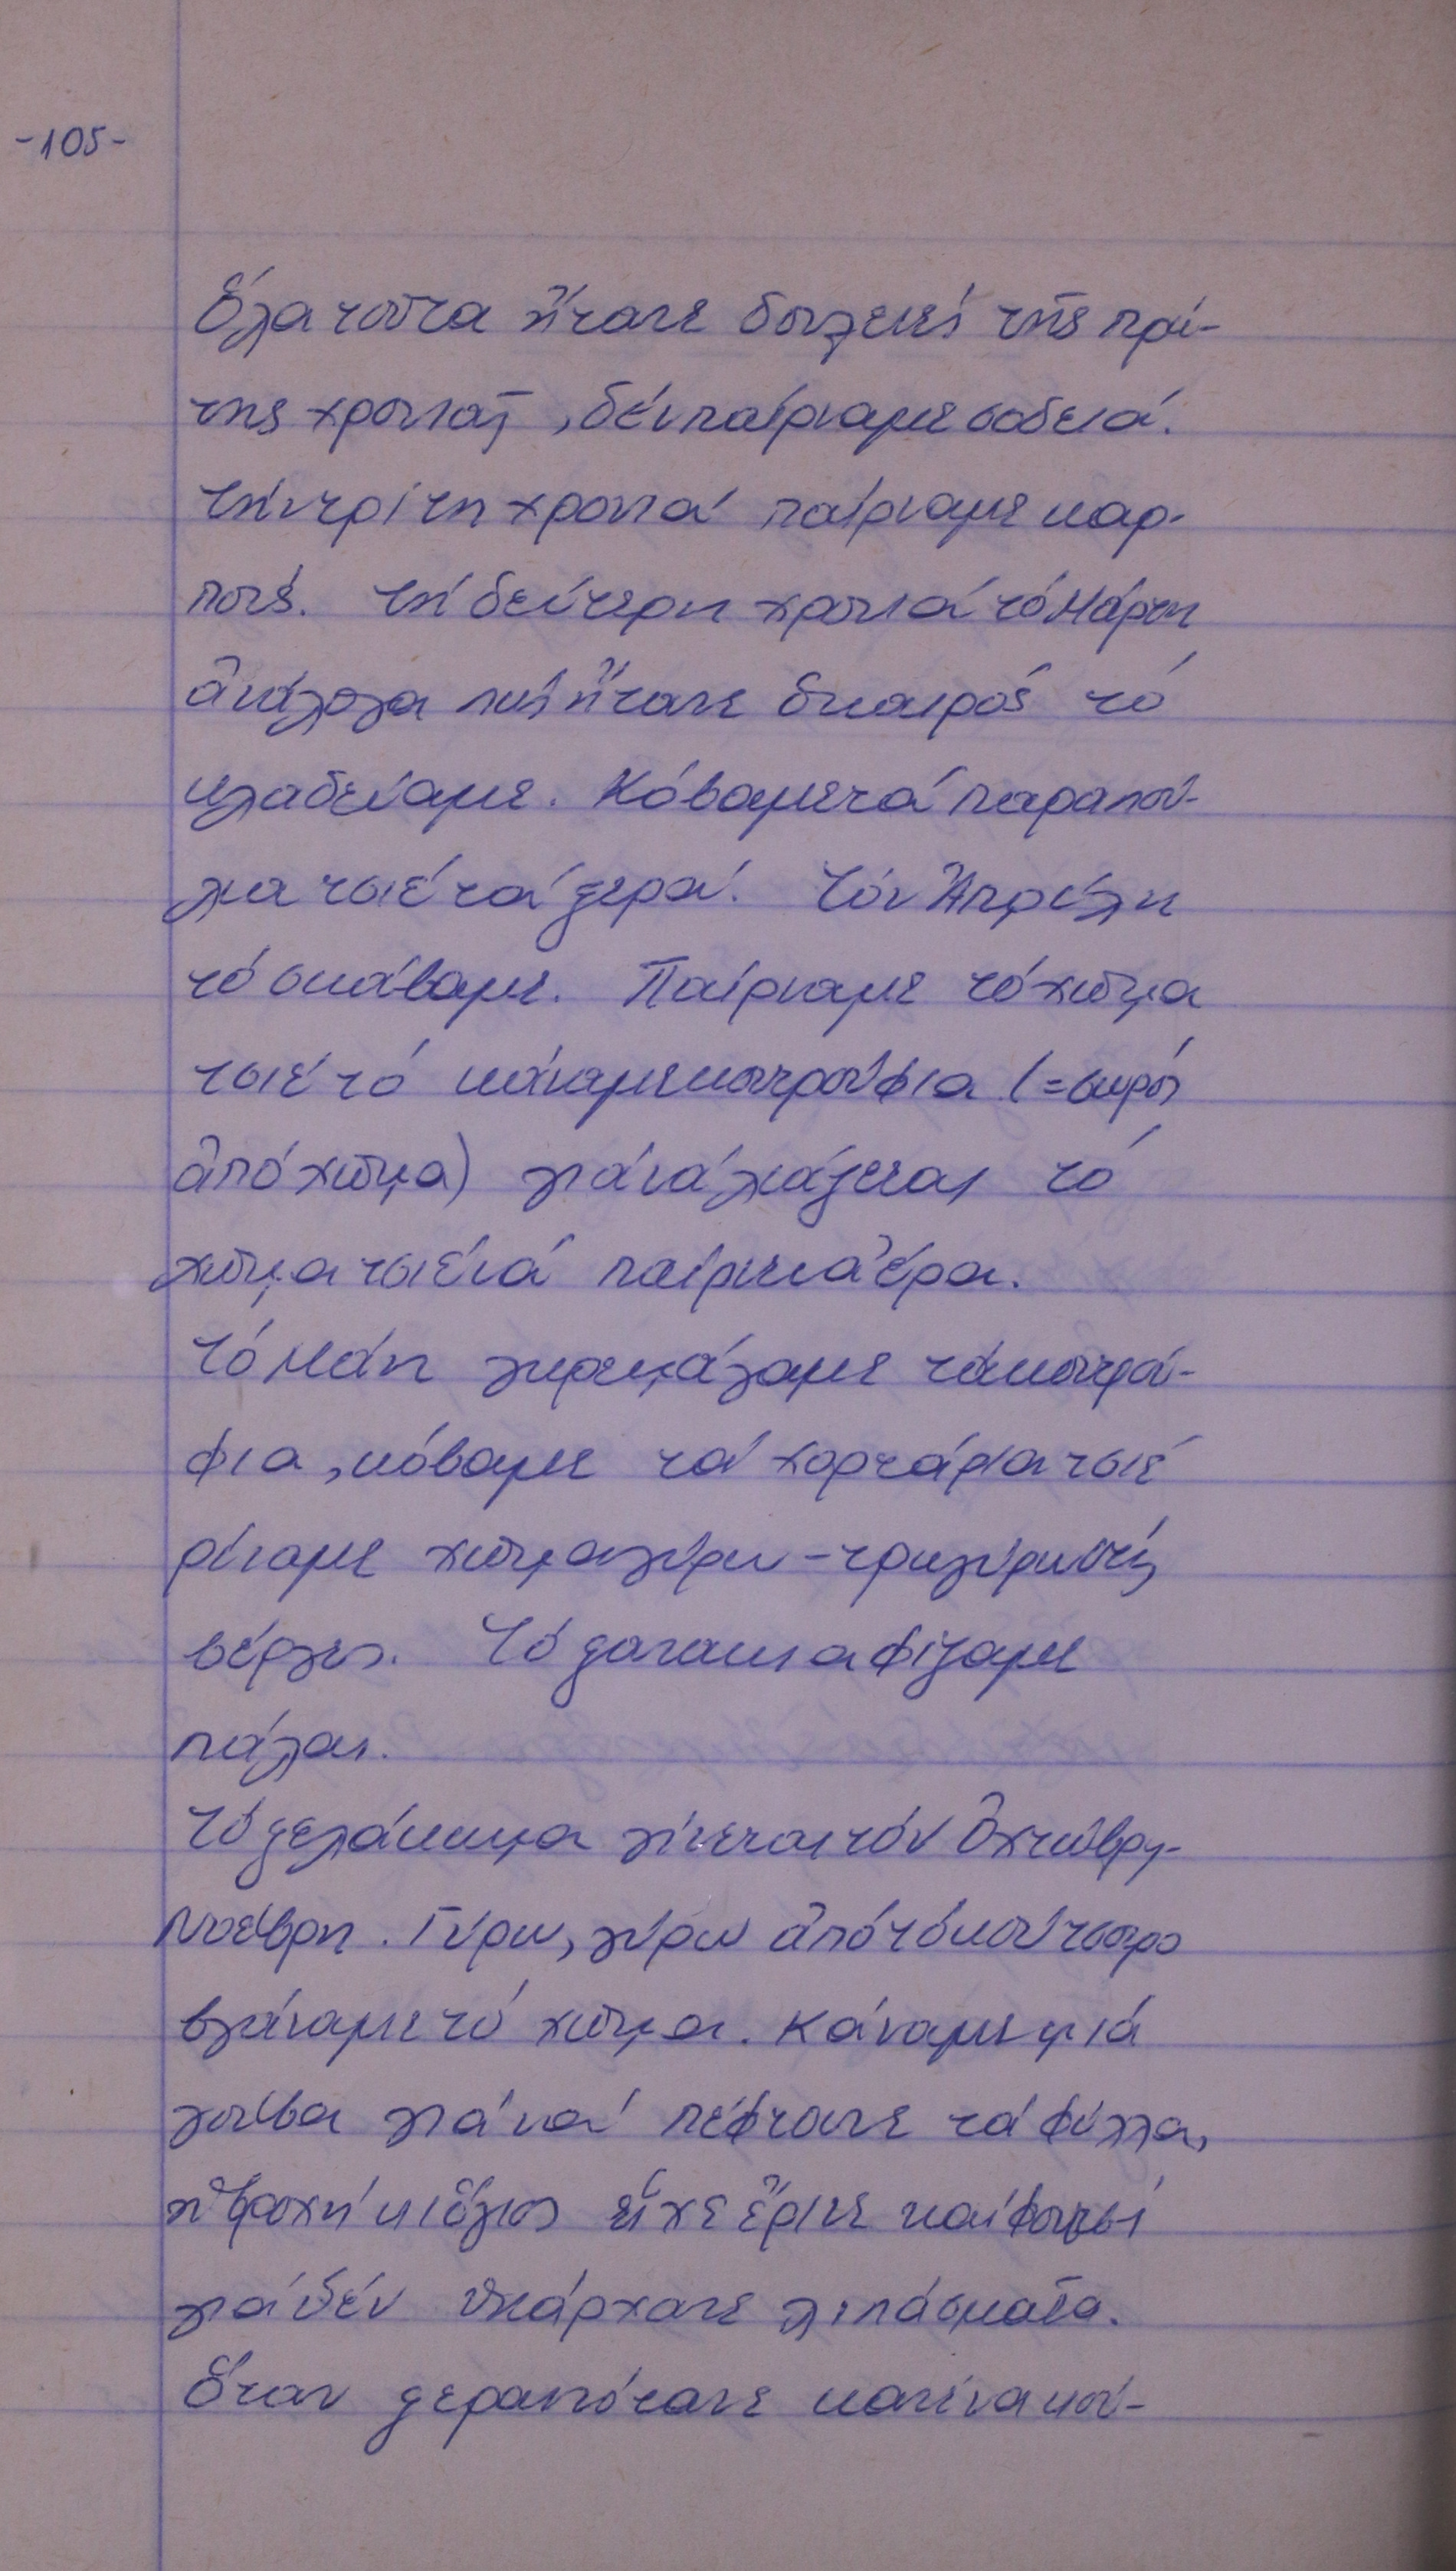 -105-
Ὅλα τοῦτα ἤτανε δουλειές τῆς πρώ-
της χρονιᾶς, δέν παίρναμε σοδειά.
Τήν τρίτη χρονιά παίρναμε καρ-
πούς. Τή δεύτερη χρονιά τό Μάρτη
ἀνάλογα πώς ἤτανε ὁ καιρός τό
κλαδεύαμε. Κόβαμε τά παραπού-
λια τσιέ τά ξερά. Τόν Ἀπρίλη
τό σκάβαμε. Παίρναμε τό χῶμα
τσιέ τό κάναμε κουτρούφια (=σωρός
ἀπό χῶμα) γιά νά λιάζεται τό
χῶμα τσιέ νά παίρνει ἀέρα.
Τό Μάη γκρεμάζαμε τά κουτρού-
φια, κόβαμε τά χορτάρια τσιέ
ρίναμε χῶμα γύρω-τρωγύρω στίς
βέργες. Τό ξαναθειαφίζαμε
πάλαι.
Τό ξελάκκωμα γίνεται τόν Ὀχτώβρη-
Νοέβρη. Γύρω, γύρω ἀπό τό κούτσουρο
βγάναμε τό χῶμα. Κάναμε μιά
γούβα γιά νά πέφτουνε τά φύλλα,
ἡ βροχή κι ὅγιος εἶχε ἔρινε καί φουσκί
γιά δέν ὑπάρχανε λιπάσματα.
Ὅταν ξεραινότανε κανένα κού-